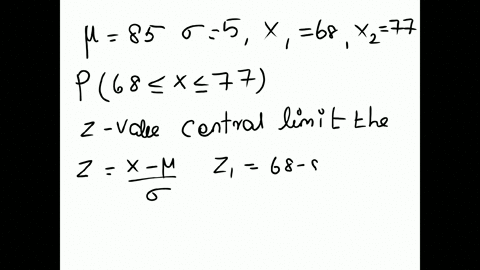 μ = 85 σ=5, x₁ =68, x₂=77
P(68 ≤ x ≤ 77)
z-value central limit the
z = (x-μ)/σ z₁ = 68-